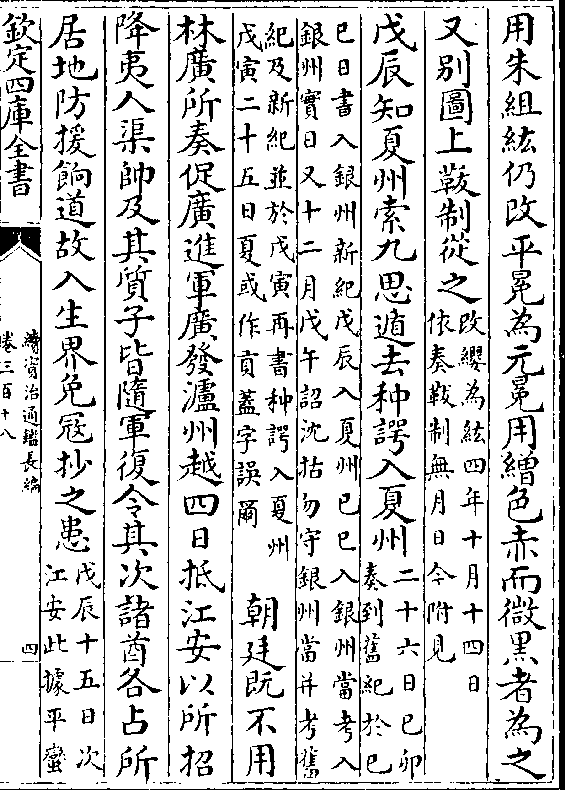 用朱組紘仍改平冕為元冕用繒色赤而微黒者為之
又别圖上韍制從之改纓為紘四年十月十四日
依奏韍制無月日今附見
戊辰知夏州索九思遁去种諤入夏州二十六日己卯
奏到舊紀於己
巳日書入銀州新紀戊辰入夏州己巳入銀州當考入
銀州實日又十二月戊午詔沈括勿守銀州當并考舊
紀及新紀並於戊寅再書种諤入夏州
戊寅二十五日夏或作貢蓋字誤爾
朝廷既不用
林廣所奏促廣進軍廣發瀘州越四日抵江安以所招
降夷人渠帥及其質子皆隨軍復令其次諸酋各占所
居地防援餉道故入生界免寇抄之患戊辰十五日次
江安此據平蠻
欽定四庫全書
續資治通鑑長編
卷三百十八
四